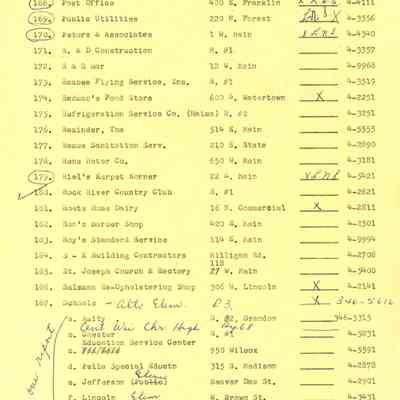 168. Post Office 400 E. Franklin 4-4111
169. Public Utilities 220 E. Forest 4-3356
170. Peters & Associates 1 W. Main 4-4340
171. R. & D Construction R. #1 4-3357
172. R & R Bar 12 W. Main 4-9968
173. Flying Service, Inc. R. #1 4-3519
174. Food Store 600 S. Watertown X 4-2251
175. Refrigeration Service Co. R. #2 4-3251
176. Reminder, The 514 E. Main 4-5555
177. Sanitation Serv. 210 S. State 4-2890
178. Motor Co. 650 W. Main 4-3181
179. Karpet Korner 22 S. Main 4-5421
180. Rock River Country Club R. #1 4-2621
181. Dairy 16 N. Commercial X 4-2811
182. Barber Shop 420 E. Main 4-2301
183. Roy's Standard Service 114 E. Main 4-9994
184. S - K Building Contractors Milligan Rd. 4-2708
118
185. St. Joseph Church & Rectory 27 W. Main 4-3400
186. Re-Upholstering Shop 306 W. Lincoln X 4-2141
187. Schools - Alto Elem. R3. X 346-5616
a. Amity G #2, Brandon 346-3315
Cent Wis Chr High
b. Chester R. #1 4-3231
Education Service Center
c. 950 Wilcox 4-3591
d. Special Educ 315 S. Madison 4-2878
Elem
e. Jefferson (Public) Beaver Dam St. 4-2901
f. Lincoln Elem W. Brown St. 4-3431
one report